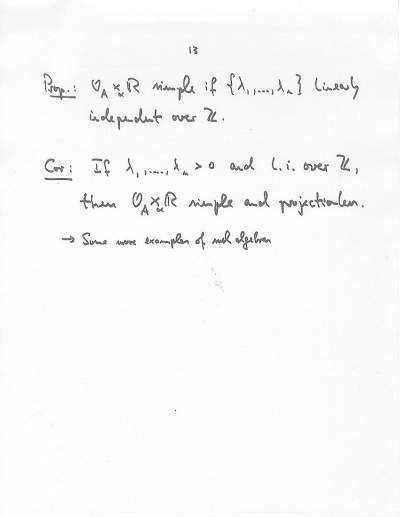 13
Prop.: O_A ×_α ℝ simple if {λ_1,...,λ_n} linearly
independent over ℤ.
Cor: If λ_1,...,λ_n > 0 and l.i. over ℤ,
then O_A ×_α ℝ simple and projectionless.
→ Some more examples of such algebras